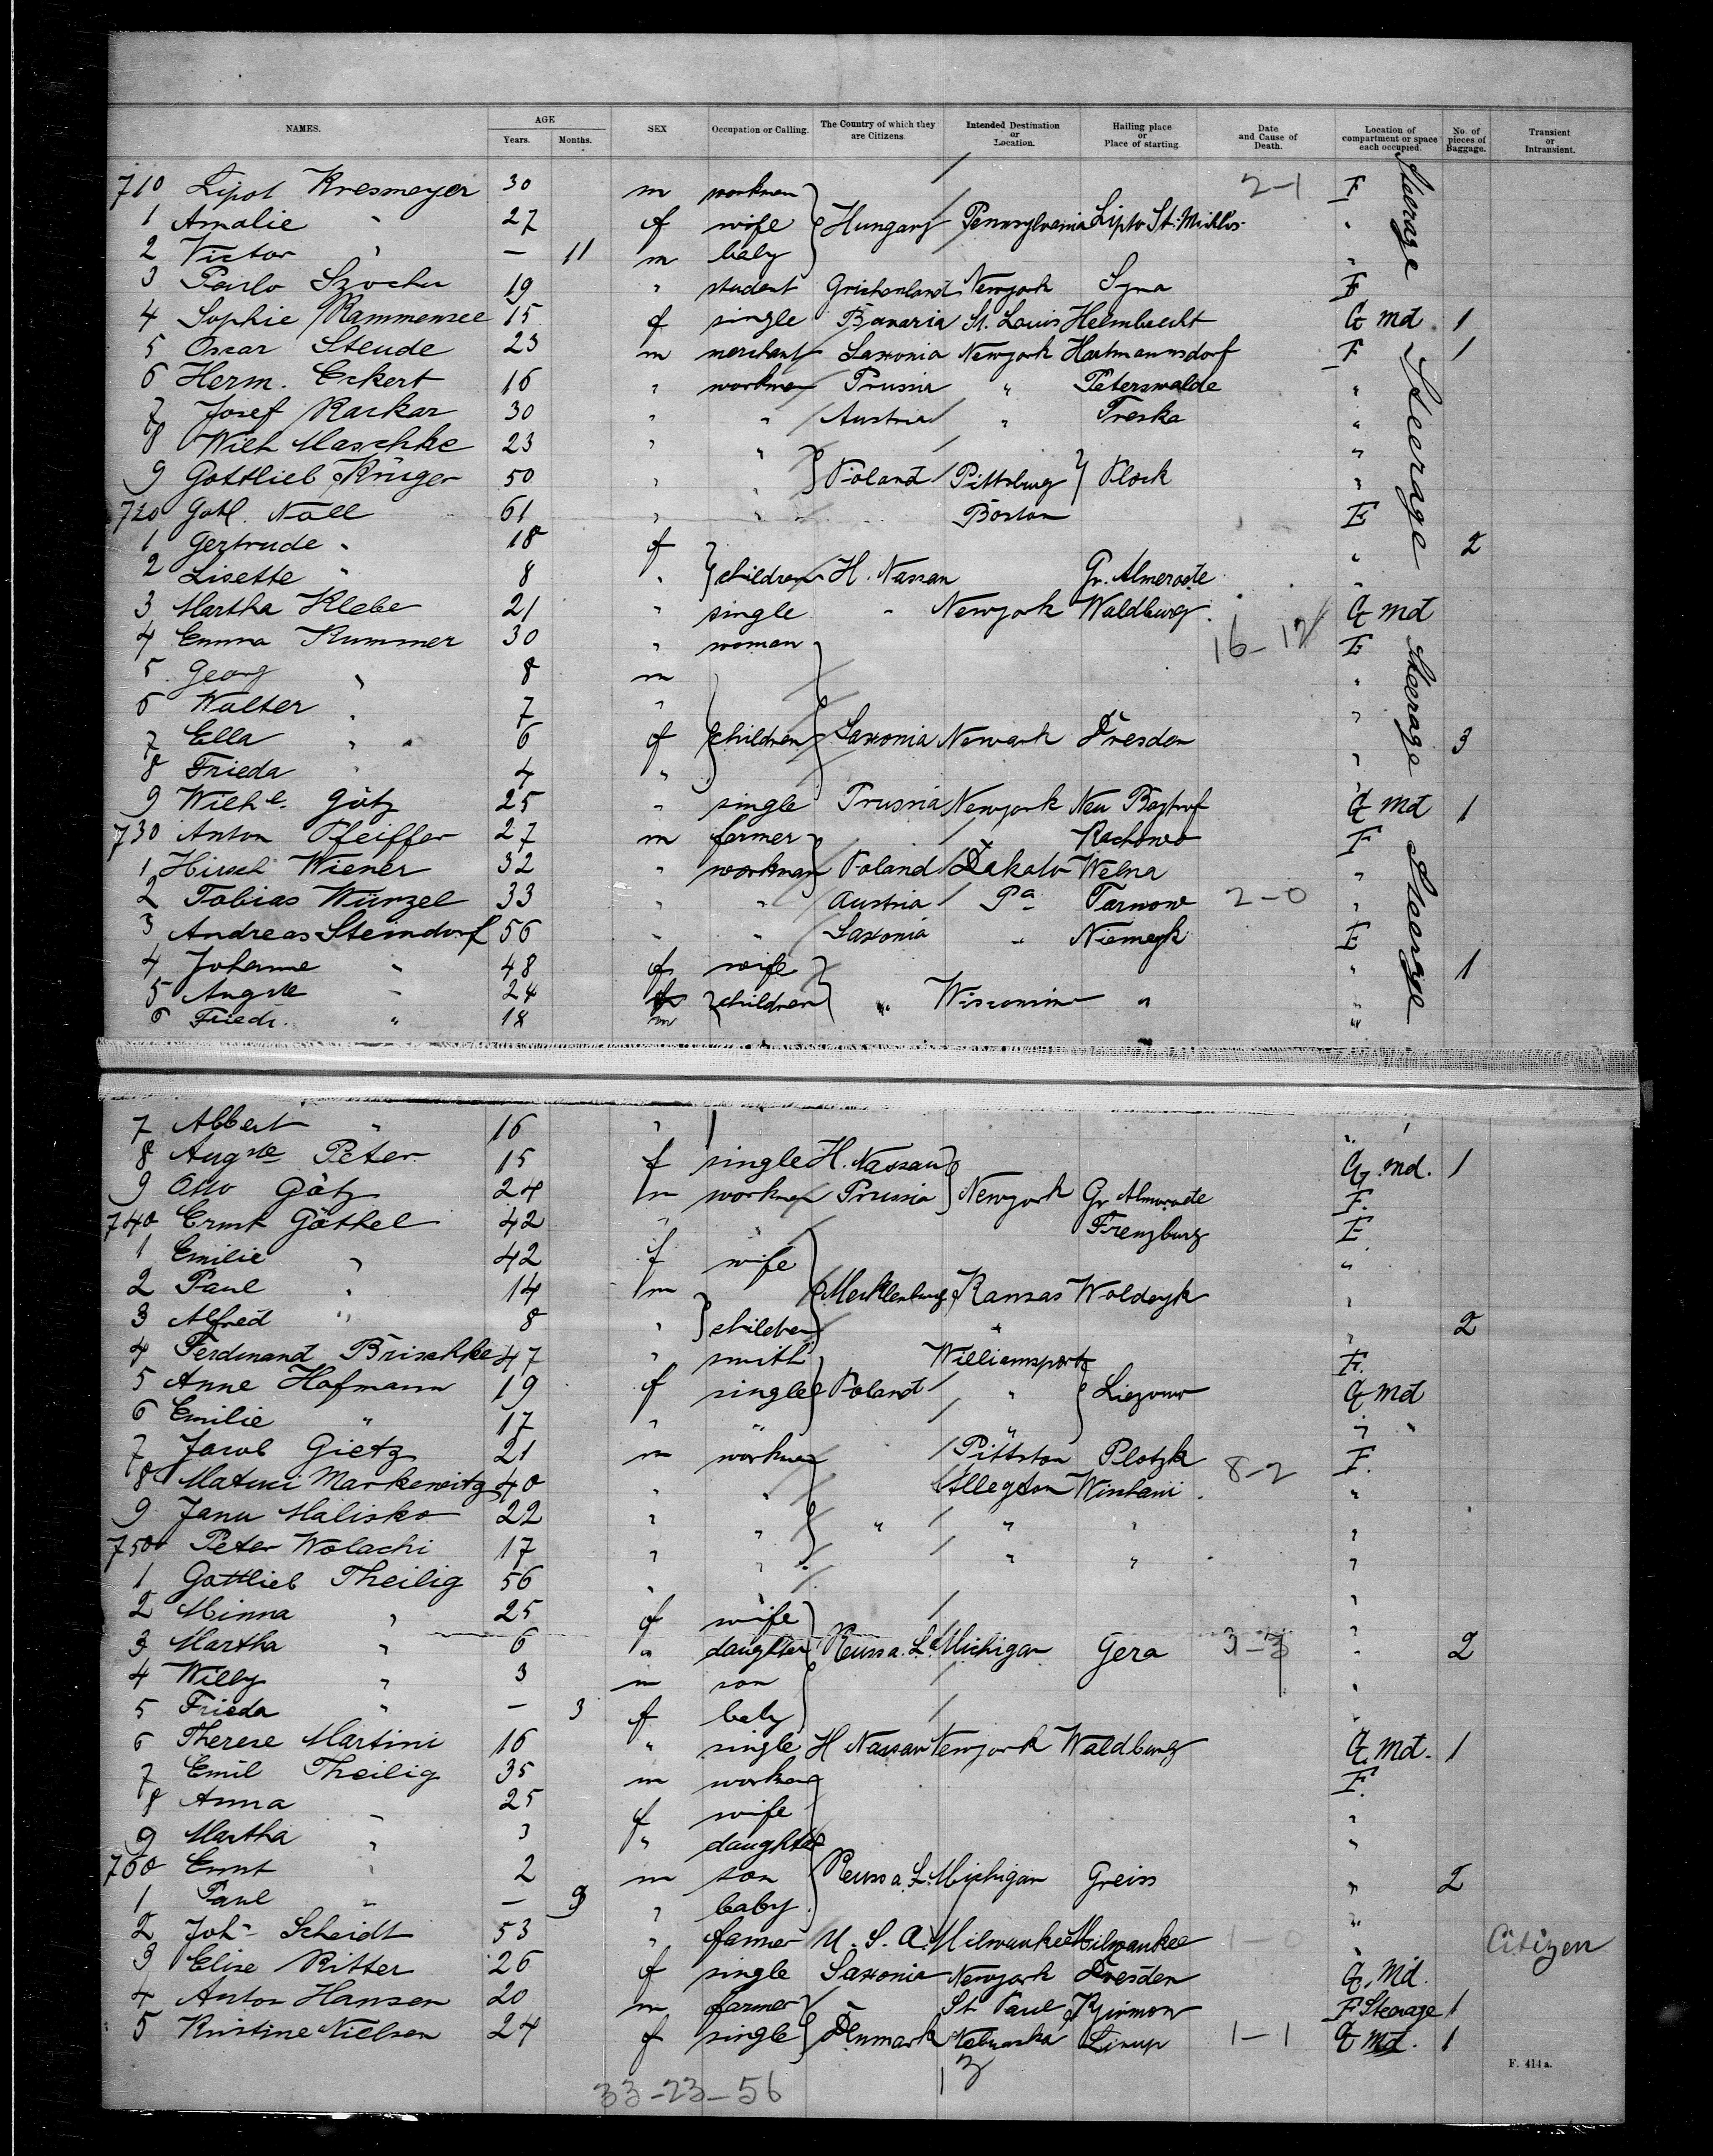 NAMES. AGE Years. Months. SEX Occupation or Calling. The Country of which they are Citizens. Intended Destination or Location. Hailing place or Place of starting. Date and Cause of Death. Location of compartment or space each occupied. No. of pieces of Baggage. Transient or Intransient.
710 Lipot Kresmeyer 30 m workman 2-1 F Steerage
1 Amalie " 27 f wife Hungary Pennsylvania Lipto St. Miklos "
2 Victor " — 11 m baby "
3 Pavlo 19 " student Grichenland Newyork Syra F
4 Sophie Rammensee 15 f single Bavaria St. Louis Helmbrecht G md 1
5 Oscar Steude 23 m merchant Saxonia Newyork Hartmannsdorf F 1 Steerage
6 Herm. Eckert 16 " workman Prussia " Peterswalde "
7 Josef Kaskar 30 " " Austria " Treska "
8 Wilh Maschke 23 " " "
9 Gottlieb Krüger 50 " " Poland Pittsburg Plock "
720 Gotl. Noll 61 " " Boston E
1 Gertrude " 18 f " 2
2 Lisette " 8 " children H. Nassau Gr. Almerode "
3 Martha Klebe 21 " single " Newyork Waldburg. G md
4 Emma Kummer 30 " woman 16-12 E Steerage
5 Georg " 8 m "
6 Walter " 7 " "
7 Ella " 6 f children Saxonia Newark Dresden " 3
8 Frieda " 4 " "
9 Wilhe. Götz 25 " single Prussia Newyork Neu G md 1
730 Anton Pfeiffer 27 m farmer Rachowo F Steerage
1 Hirsch Wiener 32 " workman Poland Dakota Welna "
2 Tobias Würzel 33 " " Austria Pa Tarnow 2-0 "
3 Andreas Sterndorf 56 " " Saxonia " Niemegk E
4 Johanne " 48 f wife " 1
5 Auguste " 24 children " Wisconsin " "
6 Friedr. " 18 m "
7 Albert " 16 " "
8 Auguste Peter 15 f single H. Nassau G. md. 1
9 Otto Götz 24 m workman Prussia Newyork Gr Almerode F.
740 Ernst Göthel 42 " " Frenzburg E
1 Emilie " 42 f wife "
2 Paul " 14 m Mecklenburg Kansas Woldegk "
3 Alfred " 8 " children " " 2
4 Ferdinand Brischke 47 " smith Williamsport E.
5 Anne Hofmann 19 f single Poland " G md
6 Emilie " 17 " " " " "
7 Jacob Gietz 21 m workman Pittston Plotzk F.
8 Markewitz 40 " " 8-2 "
9 Malisko 22 " " " " " "
750 Peter Wolachi 17 " " " " "
1 Gottlieb Theilig 56 " "
2 Minna " 25 f wife "
3 Martha " 6 " daughter Reuss a. L. Michigan Gera " 2
4 Willy " 3 m son "
5 Frieda " — 3 f baby "
6 Therese Martini 16 " single H Nassau Newyork Waldburg G. md. 1
7 Emil Theilig 35 m workman F.
8 Anna 25 f wife "
9 Martha " 3 " daughter "
760 Ernst " 2 m son Reuss a. L. Michigan Greiss " 2
1 Paul " — 9 " baby "
2 Joh. Scheidt 53 " farmer U. S. A. Milwaukee Milwaukee 1-0 " Citizen
3 Elise Ritter 26 f single Saxonia Newyork Dresden G. Md.
4 Anton Hansen 20 m farmer St. Paul F Steerage 1
5 Kristine Nielsen 24 f single Denmark Nebraska Lirup 1-1 G md. 1
33-23-56 13
F. 414 a.